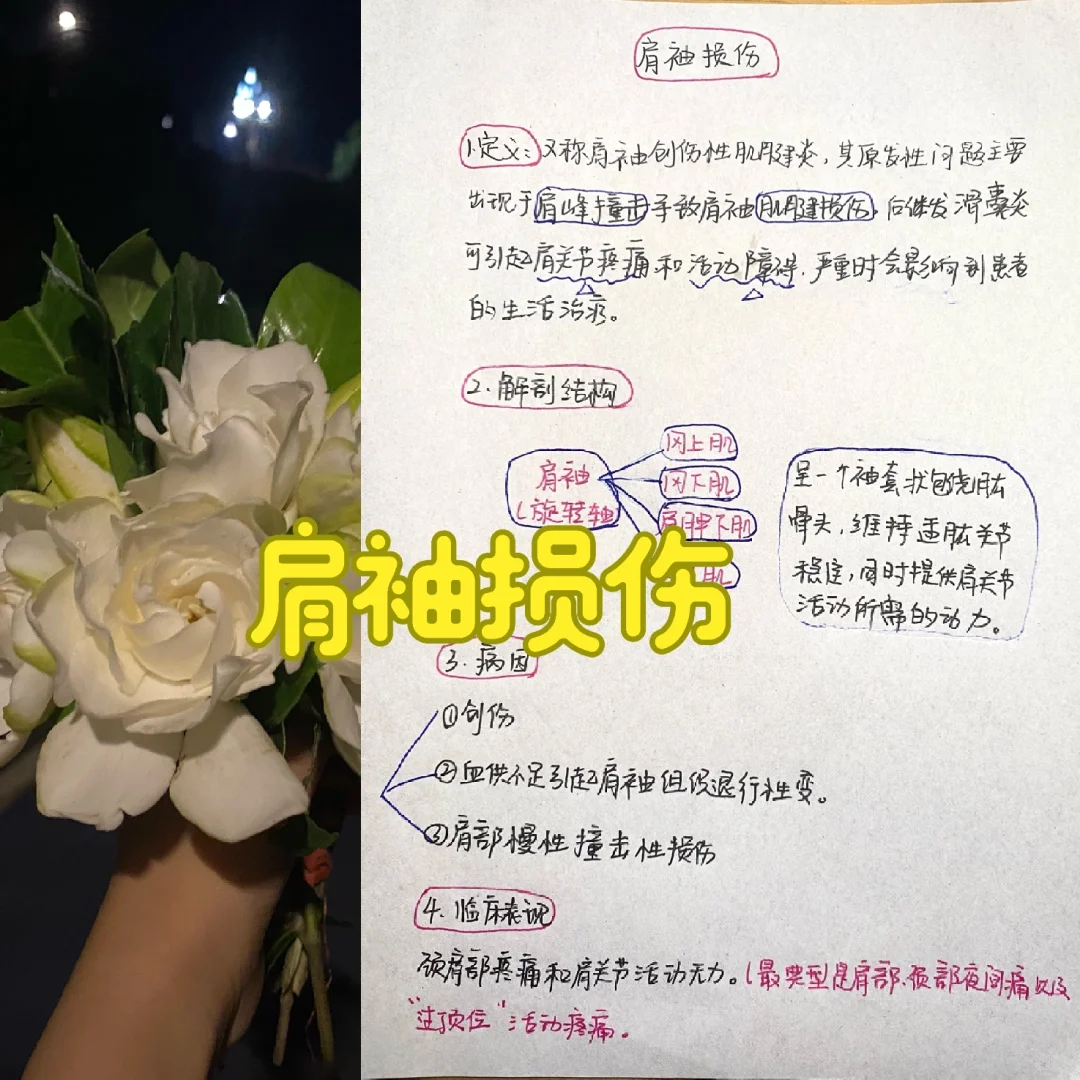 肩袖损伤
1.定义：又称肩袖创伤性肌腱炎，其原发性问题主要
出现于肩峰撞击导致肩袖肌腱损伤，后继发滑囊炎
可引起肩关节疼痛和活动障碍，严重时会影响到患者
的生活治疗。
2.解剖结构
肩袖
(旋转轴
冈上肌
冈下肌
肩胛下肌
肌
呈一个袖套状包绕肱
骨头，维持盂肱关节
稳定，同时提供肩关节
活动所需的动力。
肩袖损伤
3.病因
①创伤
②血供不足引起肩袖组织退行性变。
③肩部慢性撞击性损伤
4.临床表现
颈肩部疼痛和肩关节活动无力。(最典型是肩部、颈部夜间痛以及
“过顶位”活动疼痛。